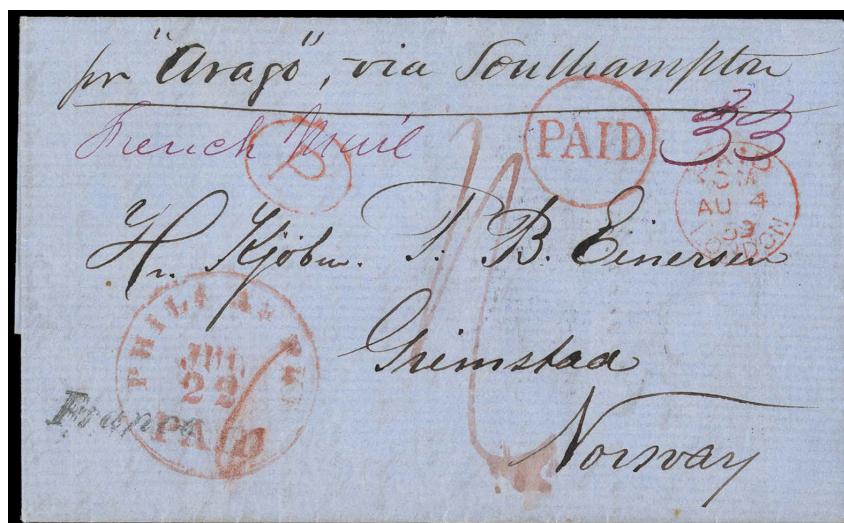 pr "Arago", via Southampton
French Mail
P
PAID
33
PAID
AU 4
59
LONDON
Hr. Kjöbm. P. B. Einersen
Grimstad
Norway
PHILA
JUL
22
PAID
Franco